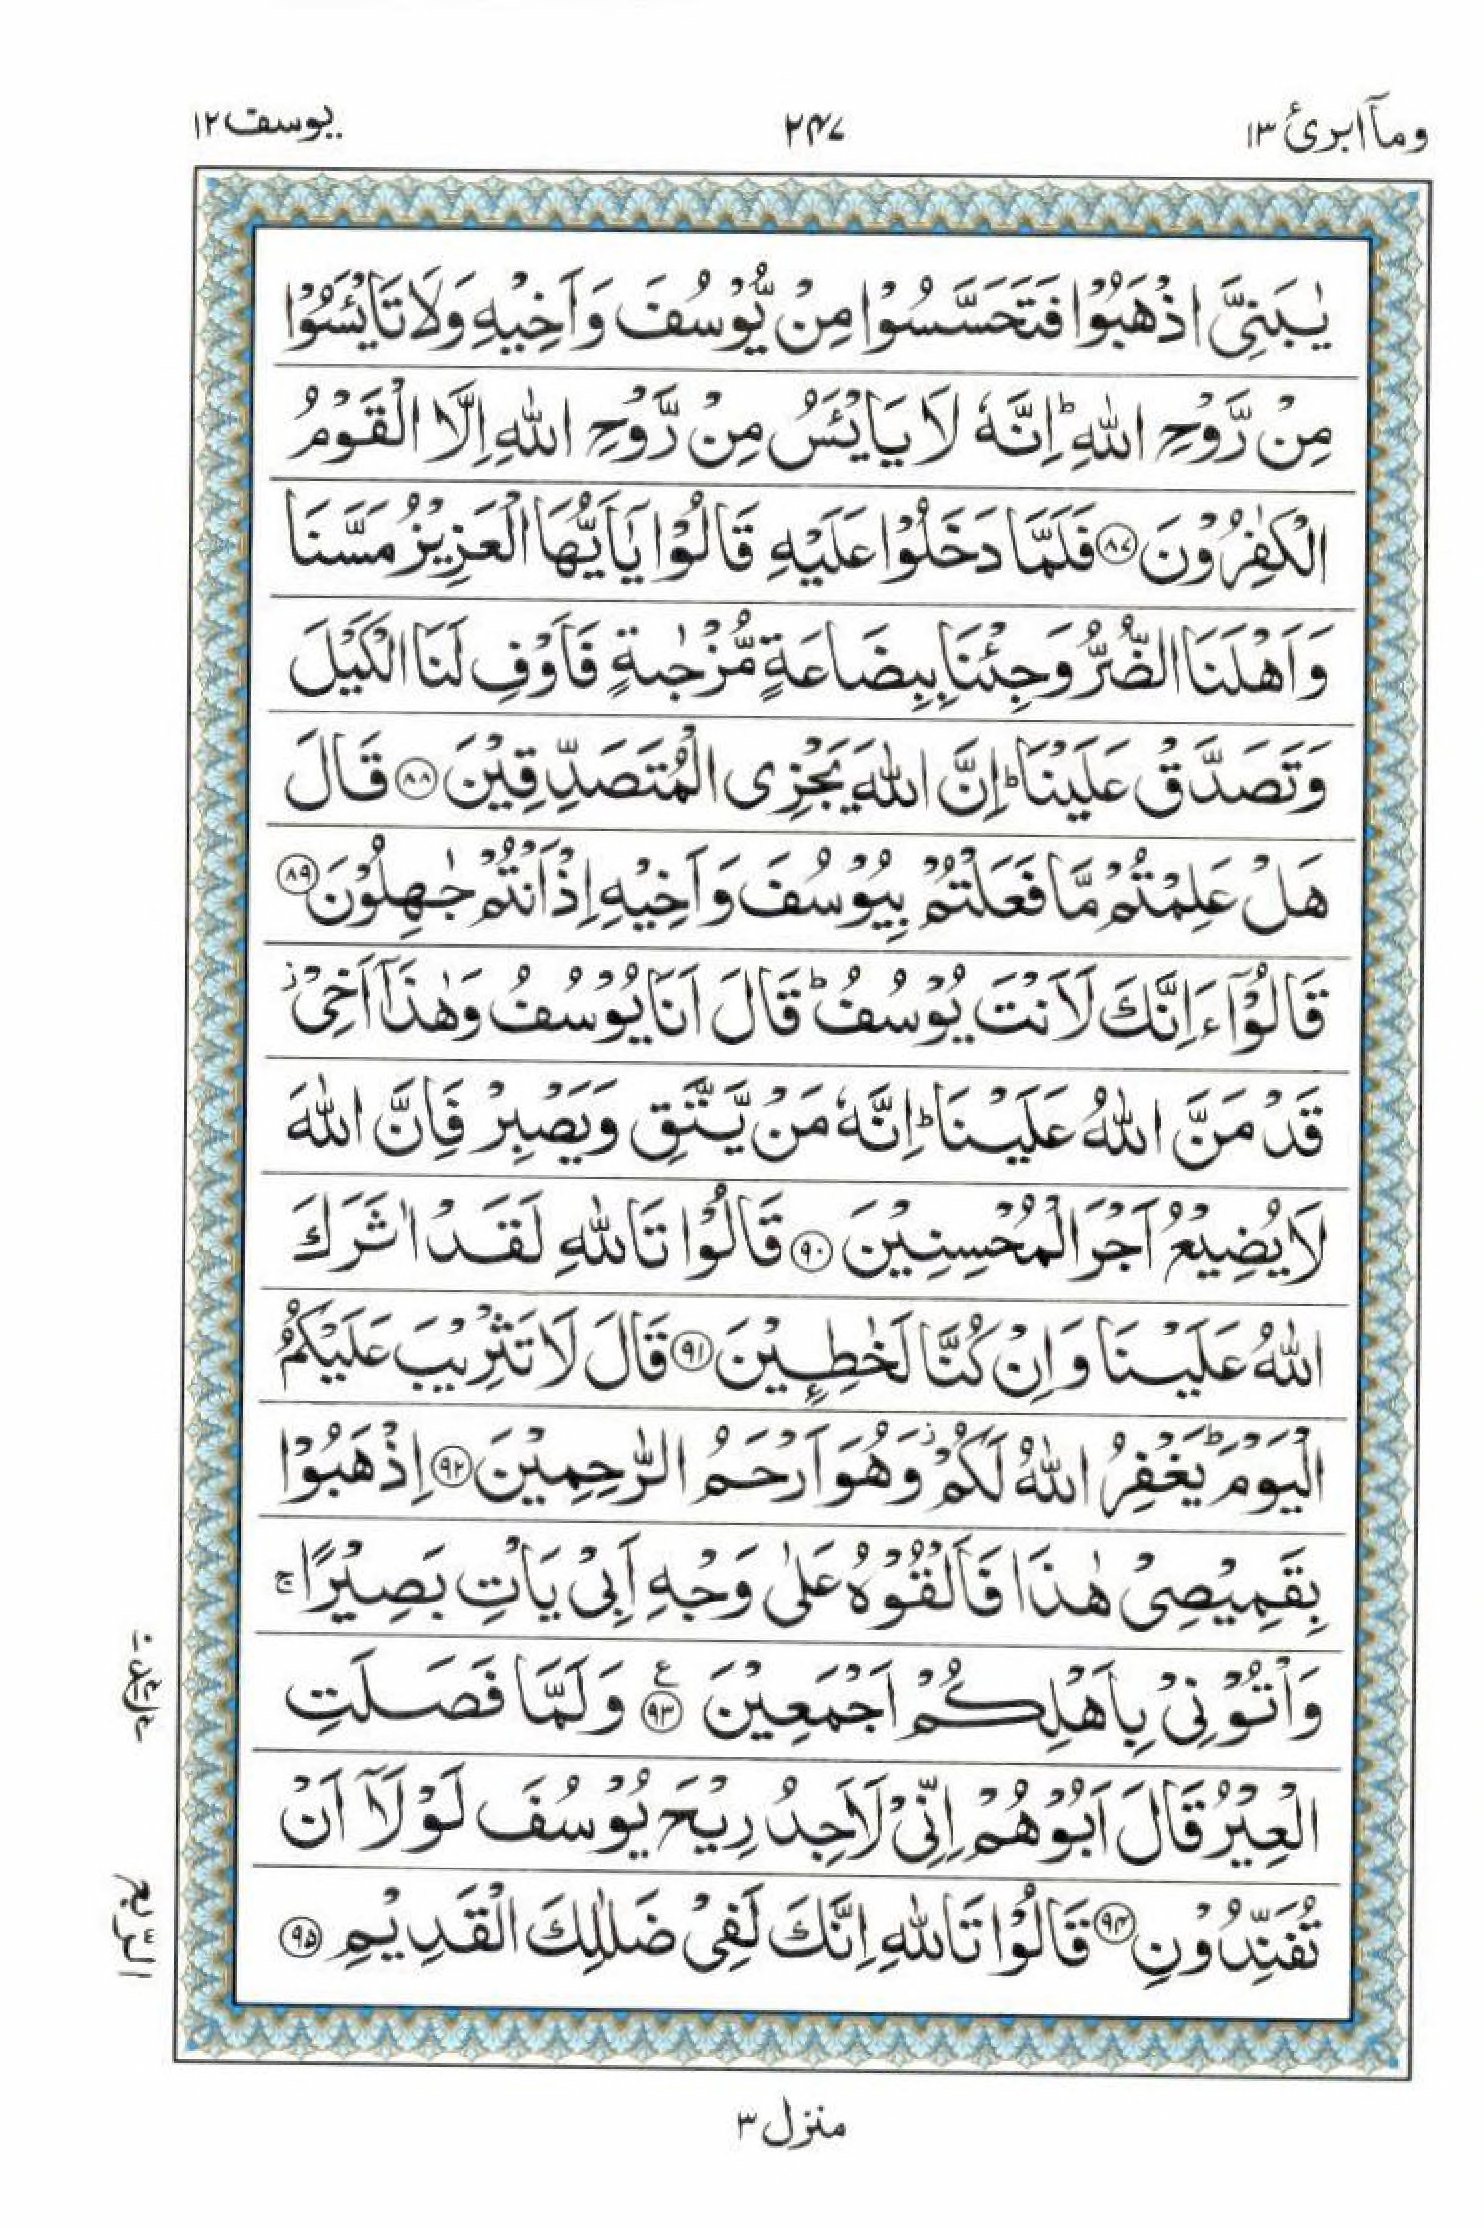 ومآ ابرئ ١٣
٢٤٧
يوسف ١٢
يٰبَنِيَّ اذْهَبُوْا فَتَحَسَّسُوْا مِنْ يُّوْسُفَ وَاَخِيْهِ وَلَا تَايْـَٔسُوْا
مِنْ رَّوْحِ اللّٰهِ ؕ اِنَّهٗ لَا يَايْـَٔسُ مِنْ رَّوْحِ اللّٰهِ اِلَّا الْقَوْمُ
الْكٰفِرُوْنَ ﴿٨٧﴾ فَلَمَّا دَخَلُوْا عَلَيْهِ قَالُوْا يٰۤاَيُّهَا الْعَزِيْزُ مَسَّنَا
وَاَهْلَنَا الضُّرُّ وَجِئْنَا بِبِضَاعَةٍ مُّزْجٰىةٍ فَاَوْفِ لَنَا الْكَيْلَ
وَتَصَدَّقْ عَلَيْنَا ؕ اِنَّ اللّٰهَ يَجْزِى الْمُتَصَدِّقِيْنَ ﴿٨٨﴾ قَالَ
هَلْ عَلِمْتُمْ مَّا فَعَلْتُمْ بِيُوْسُفَ وَاَخِيْهِ اِذْ اَنْتُمْ جٰهِلُوْنَ ﴿٨٩﴾
قَالُوْۤا ءَاِنَّكَ لَاَنْتَ يُوْسُفُ ؕ قَالَ اَنَا يُوْسُفُ وَهٰذَاۤ اَخِىْ ؗ
قَدْ مَنَّ اللّٰهُ عَلَيْنَا ؕ اِنَّهٗ مَنْ يَّتَّقِ وَيَصْبِرْ فَاِنَّ اللّٰهَ
لَا يُضِيْعُ اَجْرَ الْمُحْسِنِيْنَ ﴿٩٠﴾ قَالُوْا تَاللّٰهِ لَقَدْ اٰثَرَكَ
اللّٰهُ عَلَيْنَا وَاِنْ كُنَّا لَخٰطِـِٕيْنَ ﴿٩١﴾ قَالَ لَا تَثْرِيْبَ عَلَيْكُمُ
الْيَوْمَ ؕ يَغْفِرُ اللّٰهُ لَكُمْ ؗ وَهُوَ اَرْحَمُ الرّٰحِمِيْنَ ﴿٩٢﴾ اِذْهَبُوْا
بِقَمِيْصِىْ هٰذَا فَاَلْقُوْهُ عَلٰى وَجْهِ اَبِىْ يَاْتِ بَصِيْرًا ۚ
وَاْتُوْنِىْ بِاَهْلِكُمْ اَجْمَعِيْنَ ﴿٩٣﴾ ع وَلَمَّا فَصَلَتِ
الْعِيْرُ قَالَ اَبُوْهُمْ اِنِّىْ لَاَجِدُ رِيْحَ يُوْسُفَ لَوْلَاۤ اَنْ
تُفَنِّدُوْنِ ﴿٩٤﴾ قَالُوْا تَاللّٰهِ اِنَّكَ لَفِىْ ضَلٰلِكَ الْقَدِيْمِ ﴿٩٥﴾
الرّبع
منزل ٣